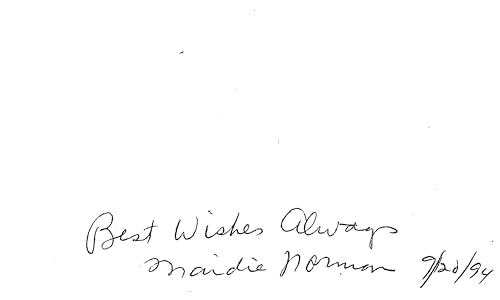 Best Wishes Always
Maidie Norman 9/20/94